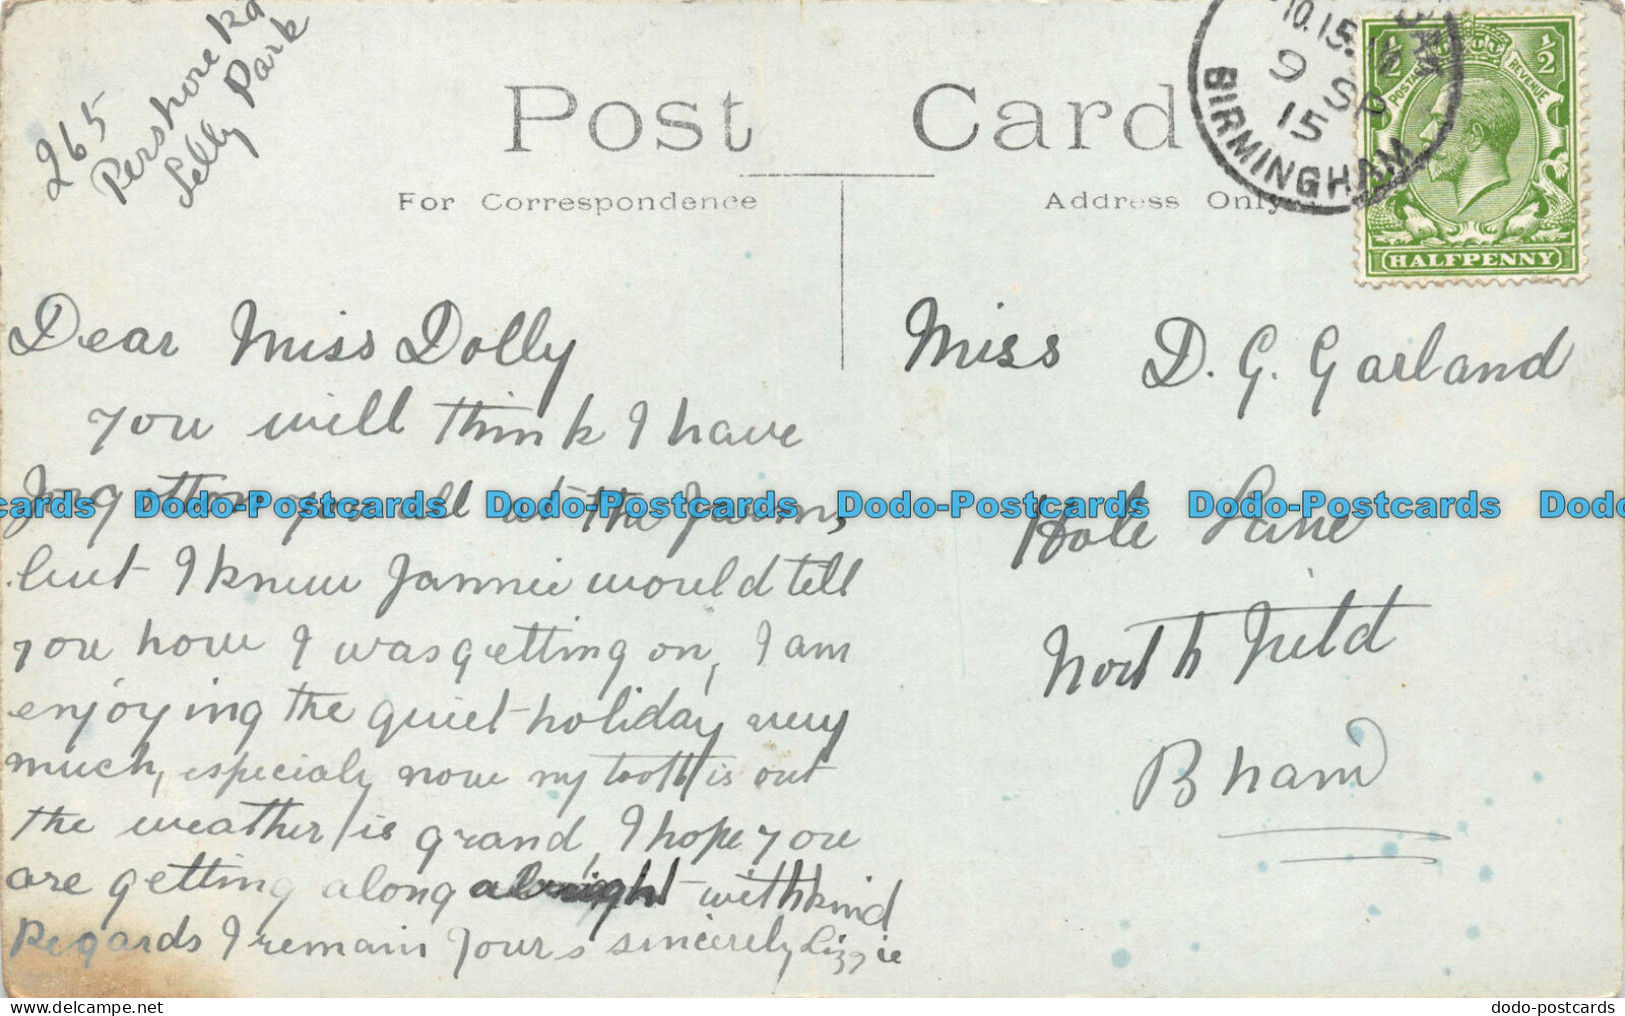 265
Pershore Rd
Selly Park
Post Card
For Correspondence
Address Only
10.15
9 SP
15
BIRMINGHAM
½ ½
POSTAGE REVENUE
HALFPENNY
Dear Miss Dolly
you will think I have
forgotten you all at the Farm,
but I knew Fannie would tell
you how I was getting on, I am
enjoying the quiet holiday very
much, especialy now my tooth is out
the weather is grand, I hope you
are getting along alright with kind
Regards I remain Yours sincerely Lizzie
Miss D. G. Garland
Hole Lane
North Field
B ham
Dodo-Postcards Dodo-Postcards Dodo-Postcards Dodo-Postcards
dodo-postcards.com